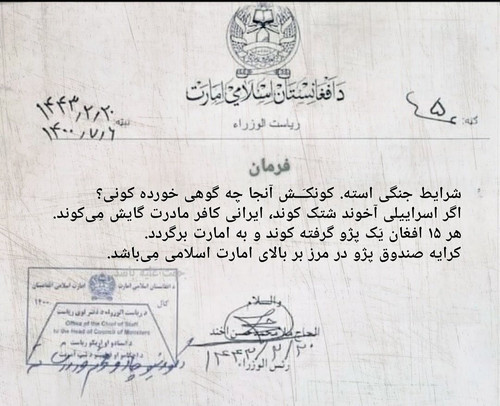 د افغانستان اسلامي امارت
ریاست الوزراء
ګڼه: ۵
نېټه: ۱۴۴۳/۲/۲۰
۱۴۰۰/۷/۶
فرمان
شرایط جنگی استه. کونکَــش آنجا چه گوهی خورده کونی؟
اگر اسراییلی آخوند شتک کوند، ایرانی کافر مادرت گایش مِی‌کوند.
هر ۱۵ افغان یَک پژو گرفته کوند و به امارت برگردد.
کرایه صندوق پژو در مرز بر بالای امارت اسلامی مِی‌باشد.
والسلام
الحاج ملا محمد حسن آخند
رئس الوزراء
۱۴۴۳/۲/۲۰
د افغانستان اسلامي امارت
امارت اسلامی افغانستان
کال
۱۴۰۰
د ریاست الوزراء د دفتر لوی ریاست
Office of the Chief of Staff
to the Head of Council of Ministers
د اسنادو او اړیکو ریاست